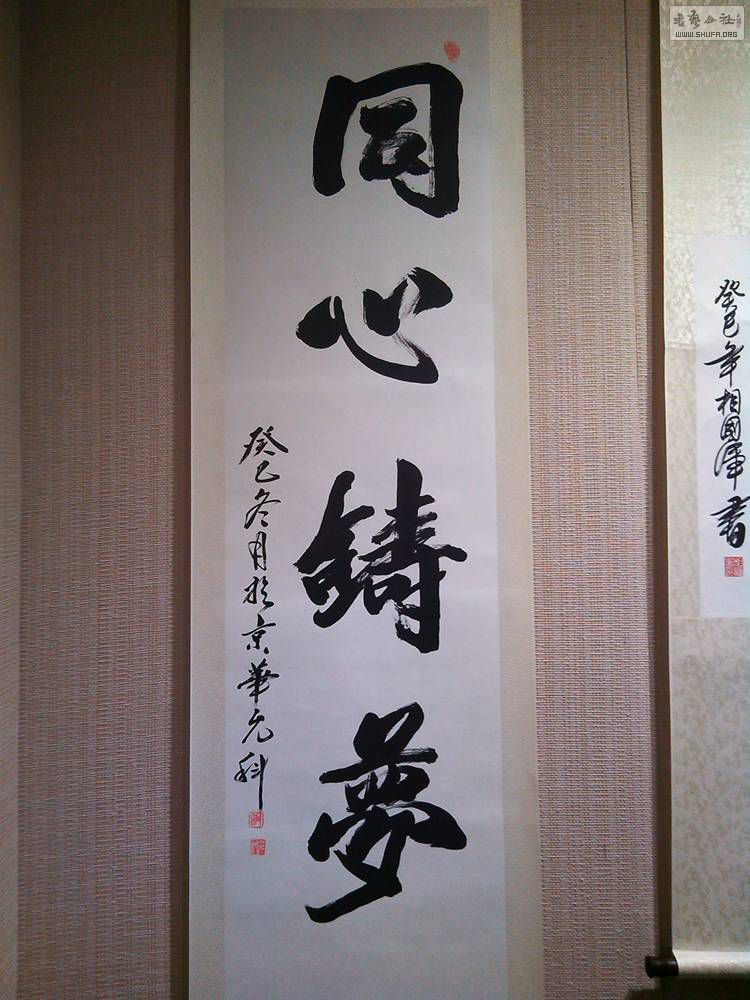 同心鑄夢
癸巳冬月於京華允科
癸巳年相國澤書
書藝公社
WWW.SHUFA.ORG